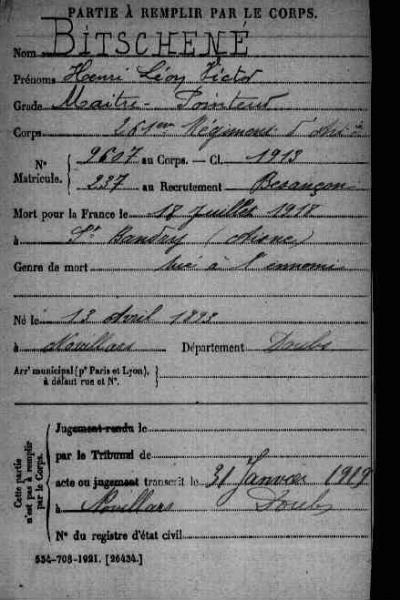 PARTIE À REMPLIR PAR LE CORPS.
Nom BITSCHENÉ
Prénoms Henri Léon Victor
Grade Maitre-Pointeur
Corps 261me Régiment d'Art
N° Matricule. { 9607 au Corps. — Cl. 1913
237 au Recrutement Besançon
Mort pour la France le 18 Juillet 1918
à St Bandry (Aisne)
Genre de mort tué à l'ennemi
Né le 13 Avril 1893
à Novillars Département Doubs
Arrt municipal (pr Paris et Lyon), à défaut rue et N°.
Cette partie n'est pas à remplir par le Corps.
Jugement rendu le
par le Tribunal de
acte ou jugement transcrit le 31 Janvier 1919
à Novillars Doubs
N° du registre d'état civil
534-708-1921. [26434.]